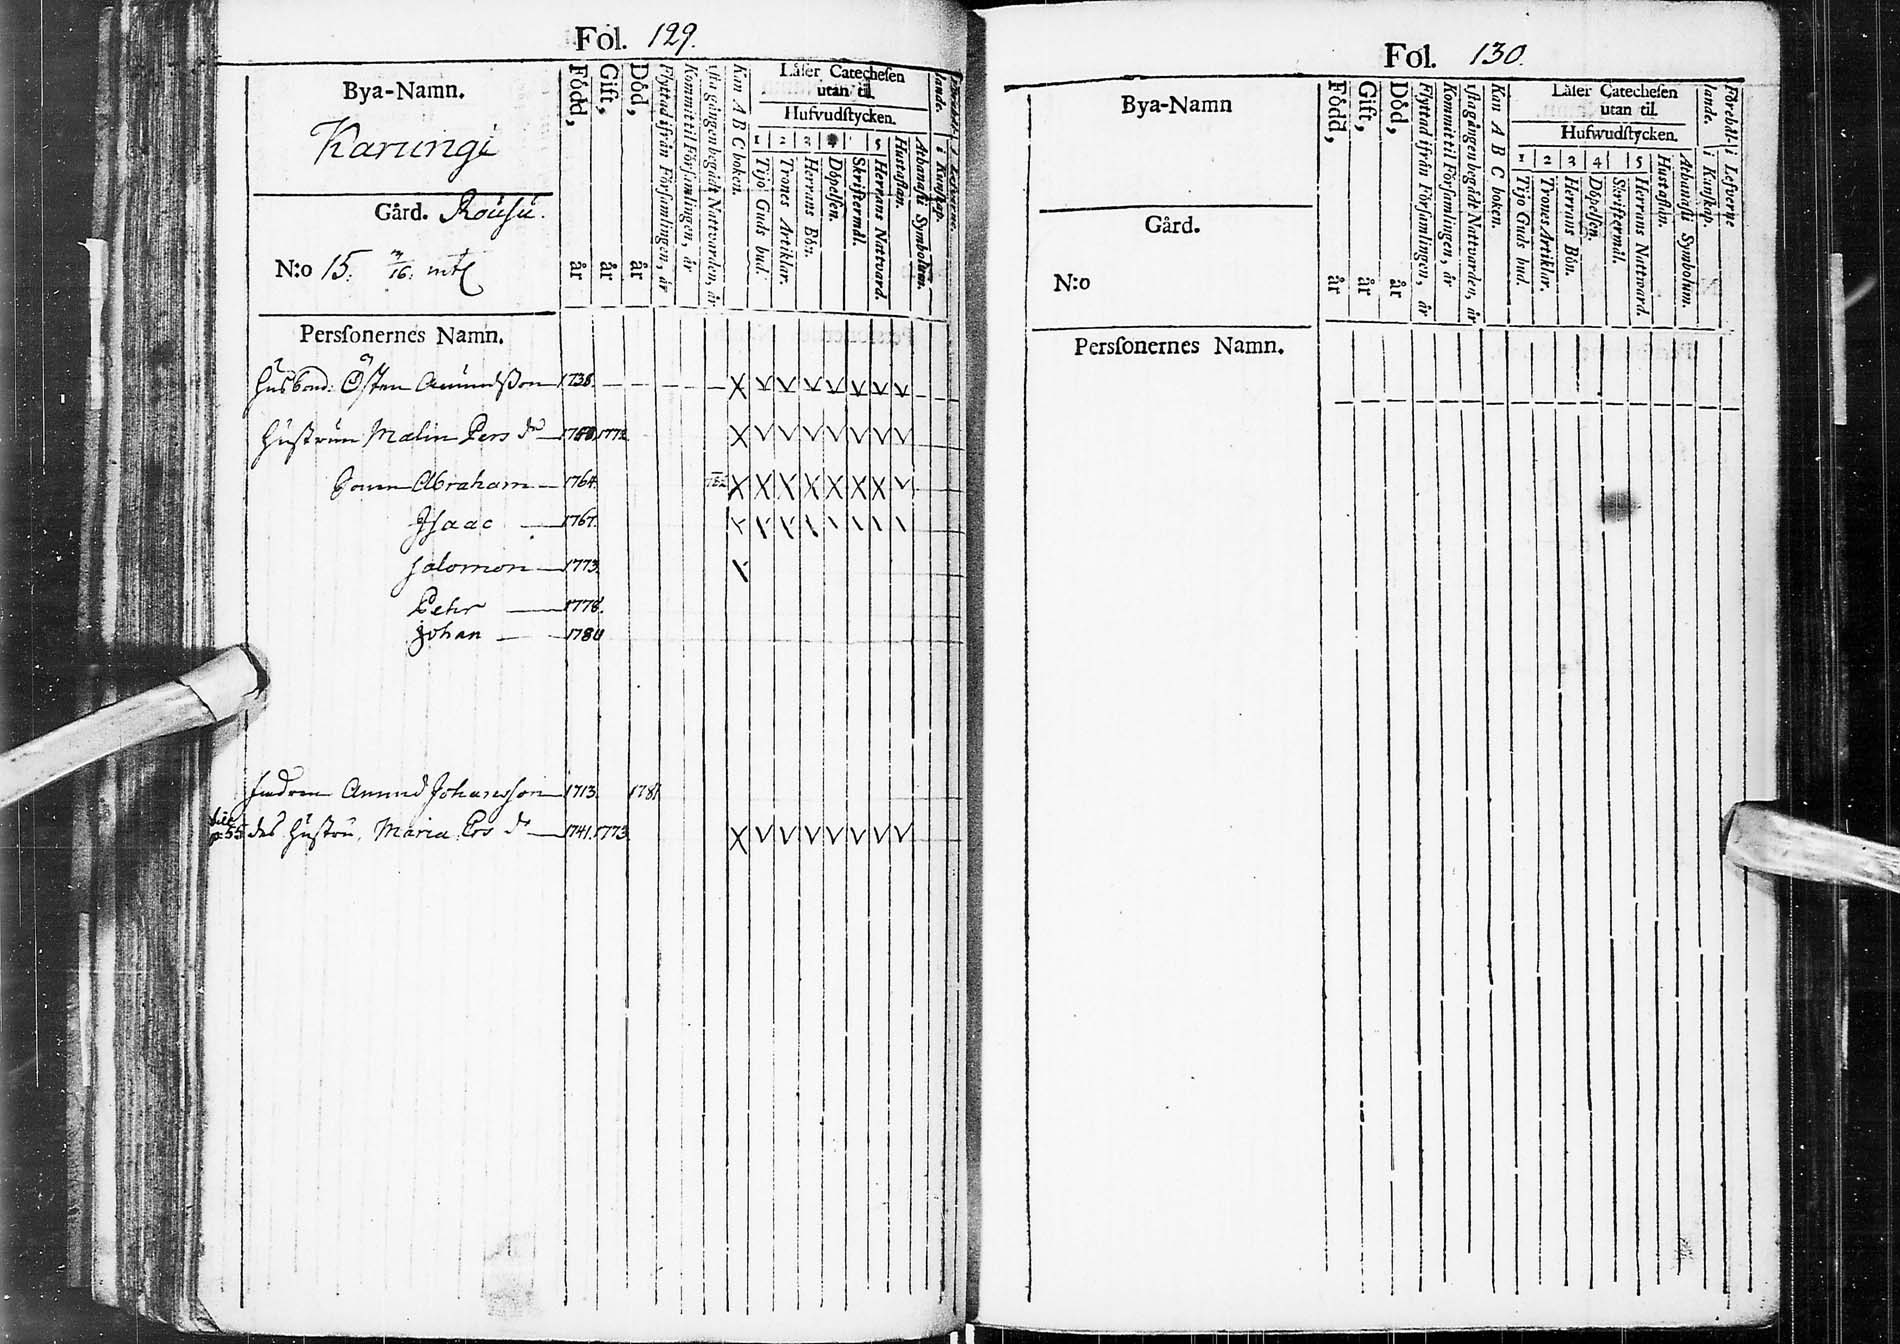 Fol. 129.
Bya-Namn.
Karungi
Gård. Rousu.
N:o 15. /16. mtl
Persſonernes Namn.
Född, år
Gift, år
Död, år
Flyttad ifrån Förſamlingen, år
Kommit til Förſamlingen, år
1ſta gången begådt Nattvarden, år
Kan A B C boken.
Låſer Catecheſen
utan til.
Hufvudſtycken.
1 Tijo Guds bud.
2 Trones Artiklar.
3 Herrans Bön.
Döpelſen.
Skriftermål.
5 Herrans Nattvard.
Huſtaflan.
Athanaſii Symbolum.
i Kunſkap.
i Lefverne.
Husbond: Östen Amundsson 1738.
Hustrun Malin Pers dr 1772
Sonen Abraham 1764.
Isaac 1767.
Salomon 1773.
Pehr 1778.
Johan 178
Amund Johansson 1713. 1781
p 55 des Hustru, Maria Ers dr 1741. 1773.
Fol. 130.
Bya-Namn
Gård.
N:o
Persſonernes Namn.
Född, år
Gift, år
Död, år
Flyttad ifrån Förſamlingen, år
Kommit til Förſamlingen, år
1ſta gången begådt Nattvarden, år
Kan A B C boken.
Låſer Catecheſen
utan til.
Hufwudſtycken.
1 Tijo Guds bud.
2 Trones Artiklar.
3 Herrans Bön.
4 Döpelſen.
Skriftermål.
5 Herrans Nattvard.
Huſtaflan.
Athanaſii Symbolum.
Förehållande.
i Kunſkap.
i Lefverne